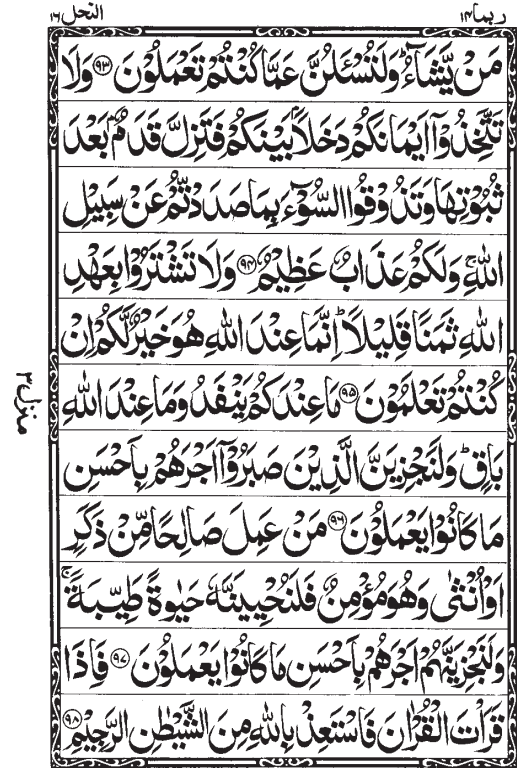 ربما ١٤
النحل ١٦
مَنْ يَّشَآءُ ؕ وَلَتُسْـَٔلُنَّ عَمَّا كُنْتُمْ تَعْمَلُوْنَ ﴿۹۳﴾ وَلَا
تَتَّخِذُوْۤا اَيْمَانَكُمْ دَخَلًۢا بَيْنَكُمْ فَتَزِلَّ قَدَمٌۢ بَعْدَ
ثُبُوْتِهَا وَتَذُوْقُوا السُّوْٓءَ بِمَا صَدَدْتُّمْ عَنْ سَبِيْلِ
اللّٰهِ ۚ وَلَكُمْ عَذَابٌ عَظِيْمٌ ﴿۹۴﴾ وَلَا تَشْتَرُوْا بِعَهْدِ
اللّٰهِ ثَمَنًا قَلِيْلًا ؕ اِنَّمَا عِنْدَ اللّٰهِ هُوَ خَيْرٌ لَّكُمْ اِنْ
كُنْتُمْ تَعْلَمُوْنَ ﴿۹۵﴾ مَا عِنْدَكُمْ يَنْفَدُ وَمَا عِنْدَ اللّٰهِ
بَاقٍ ؕ وَلَنَجْزِيَنَّ الَّذِيْنَ صَبَرُوْۤا اَجْرَهُمْ بِاَحْسَنِ
مَا كَانُوْا يَعْمَلُوْنَ ﴿۹۶﴾ مَنْ عَمِلَ صَالِحًا مِّنْ ذَكَرٍ
اَوْ اُنْثٰى وَهُوَ مُؤْمِنٌ فَلَنُحْيِيَنَّهٗ حَيٰوةً طَيِّبَةً ۚ
وَلَنَجْزِيَنَّهُمْ اَجْرَهُمْ بِاَحْسَنِ مَا كَانُوْا يَعْمَلُوْنَ ﴿۹۷﴾ فَاِذَا
قَرَاْتَ الْقُرْاٰنَ فَاسْتَعِذْ بِاللّٰهِ مِنَ الشَّيْطٰنِ الرَّجِيْمِ ﴿۹۸﴾
منزل ٣